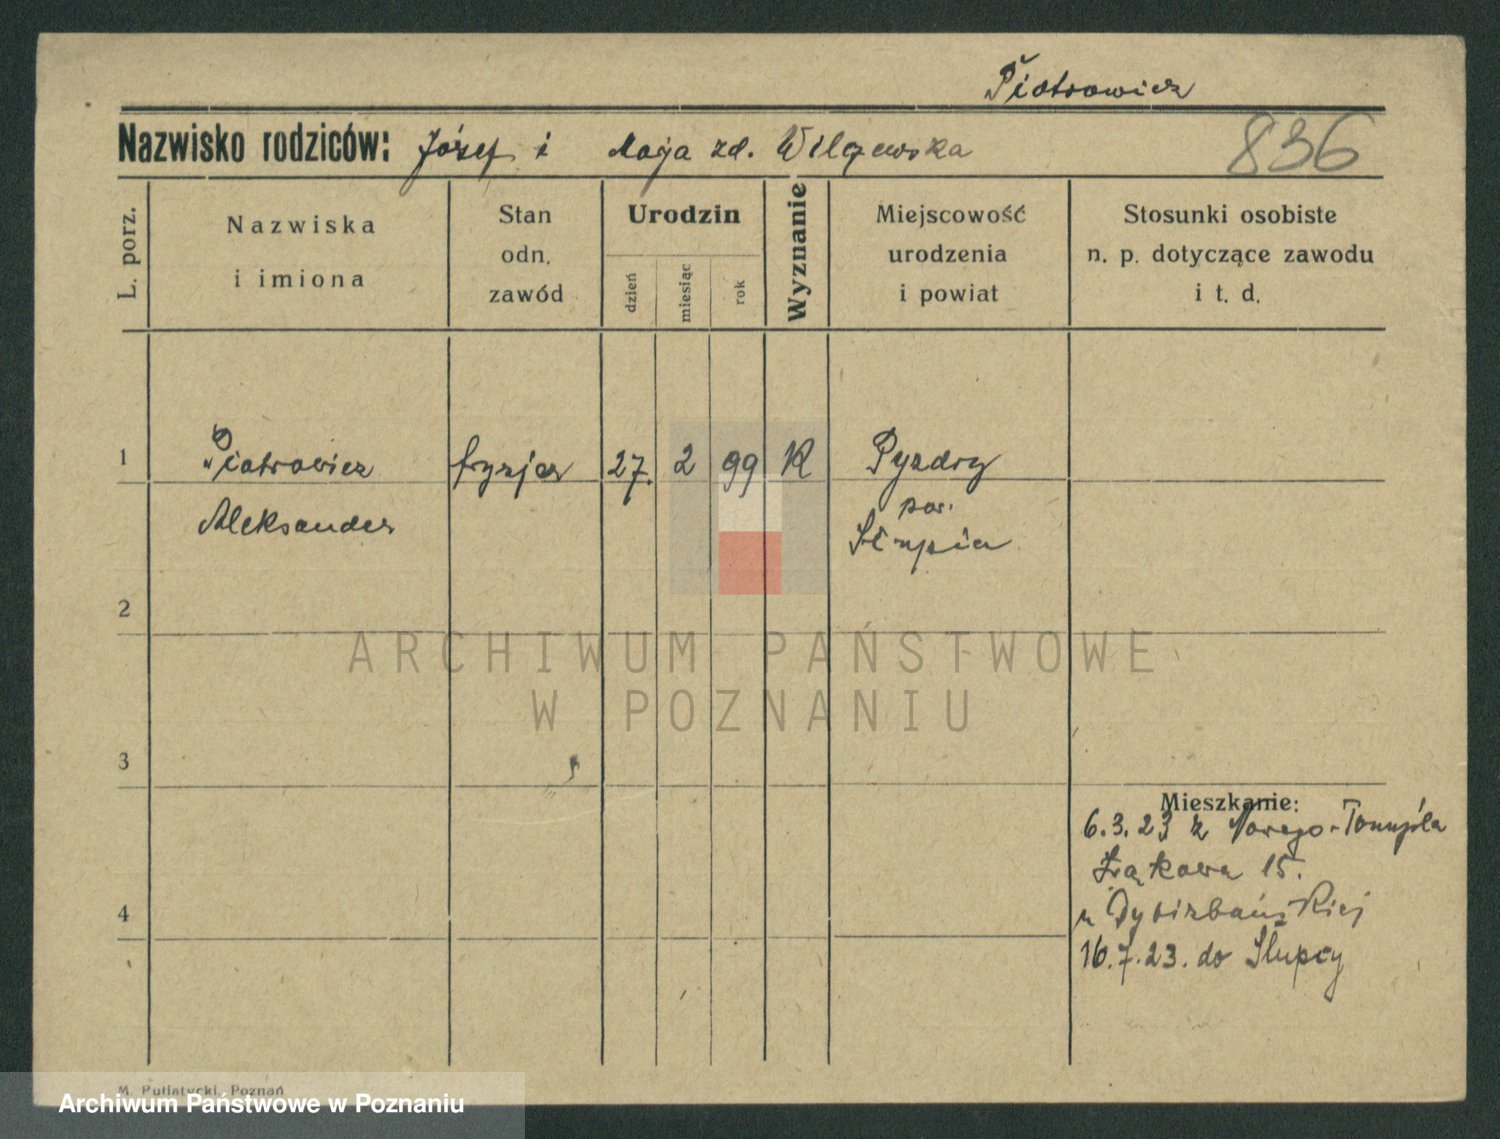 Piotrowicz
Nazwisko rodziców: Józef i Maija zd. Wilczewska
836
L. porz.
Nazwiska
i imiona
Stan
odn.
zawód
Urodzin
dzień
miesiąc
rok
Wyznanie
Miejscowość
urodzenia
i powiat
Stosunki osobiste
n. p. dotyczące zawodu
i t. d.
1 Piotrowicz fryzjer 27. 2 99 K Pyzdry
Aleksander
pow.
Słupia
2
ARCHIWUM PAŃSTWOWE
W POZNANIU
3
Mieszkanie:
6.3.23 z Nowego-Tomyśla
Łąkowa 15.
u
4
16.7.23. do Słupcy
M. Putiatycki, Poznań
Archiwum Państwowe w Poznaniu